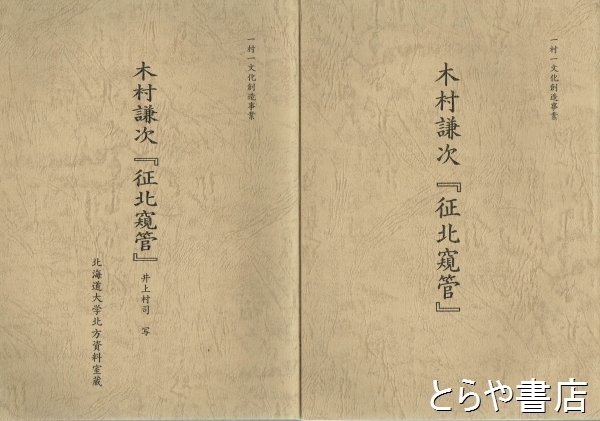 一村一文化創造事業
木村謙次『征北窺管』
一村一文化創造事業
木村謙次『征北窺管』
井上村司 写
北海道大学北方資料室蔵
とらや書店